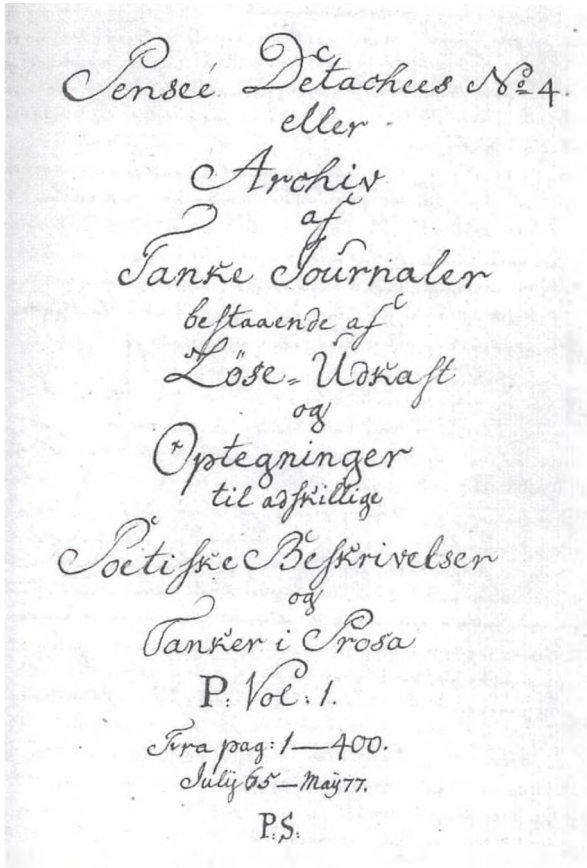 Penseé Détachees No 4.
eller
Archiv
af
Tanke Journaler
bestaaende af
Löse= Udkast
og
Optegninger
til adskillige
Poëtiske Beskrivelser
og
Tanker i Prosa
P: Vol: 1.
Fra pag: 1—400.
Julij 65—Maij 77.
P.S: